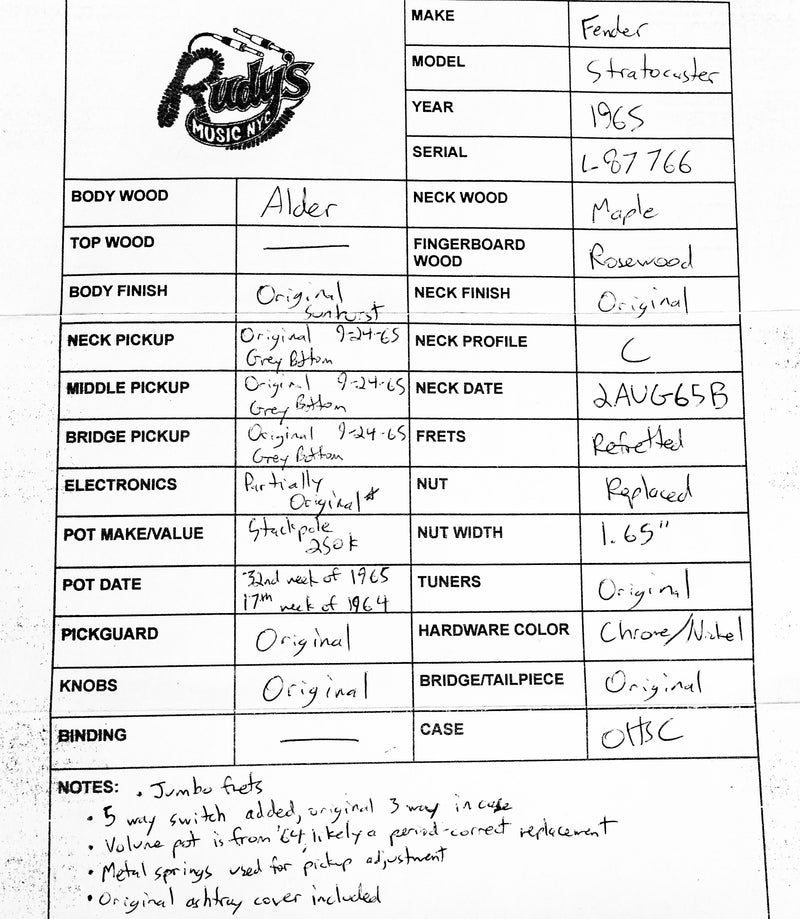 Rudy's
MUSIC NYC
MAKE Fender
MODEL Stratocaster
YEAR 1965
SERIAL L-87766
BODY WOOD Alder NECK WOOD Maple
TOP WOOD — FINGERBOARD WOOD Rosewood
BODY FINISH Original Sunburst NECK FINISH Original
NECK PICKUP Original 9-24-65 Grey Bottom NECK PROFILE C
MIDDLE PICKUP Original 9-24-65 Grey Bottom NECK DATE 2AUG65B
BRIDGE PICKUP Original 9-24-65 Grey Bottom FRETS Refretted
ELECTRONICS Partially Original* NUT Replaced
POT MAKE/VALUE Stackpole 250k NUT WIDTH 1.65"
POT DATE 32nd week of 1965 17th week of 1964 TUNERS Original
PICKGUARD Original HARDWARE COLOR Chrome/Nickel
KNOBS Original BRIDGE/TAILPIECE Original
BINDING — CASE OHSC
NOTES: • Jumbo frets
• 5 way switch added, original 3 way in case
• Volume pot is from '64, likely a period-correct replacement
• Metal springs used for pickup adjustment
• Original ashtray cover included